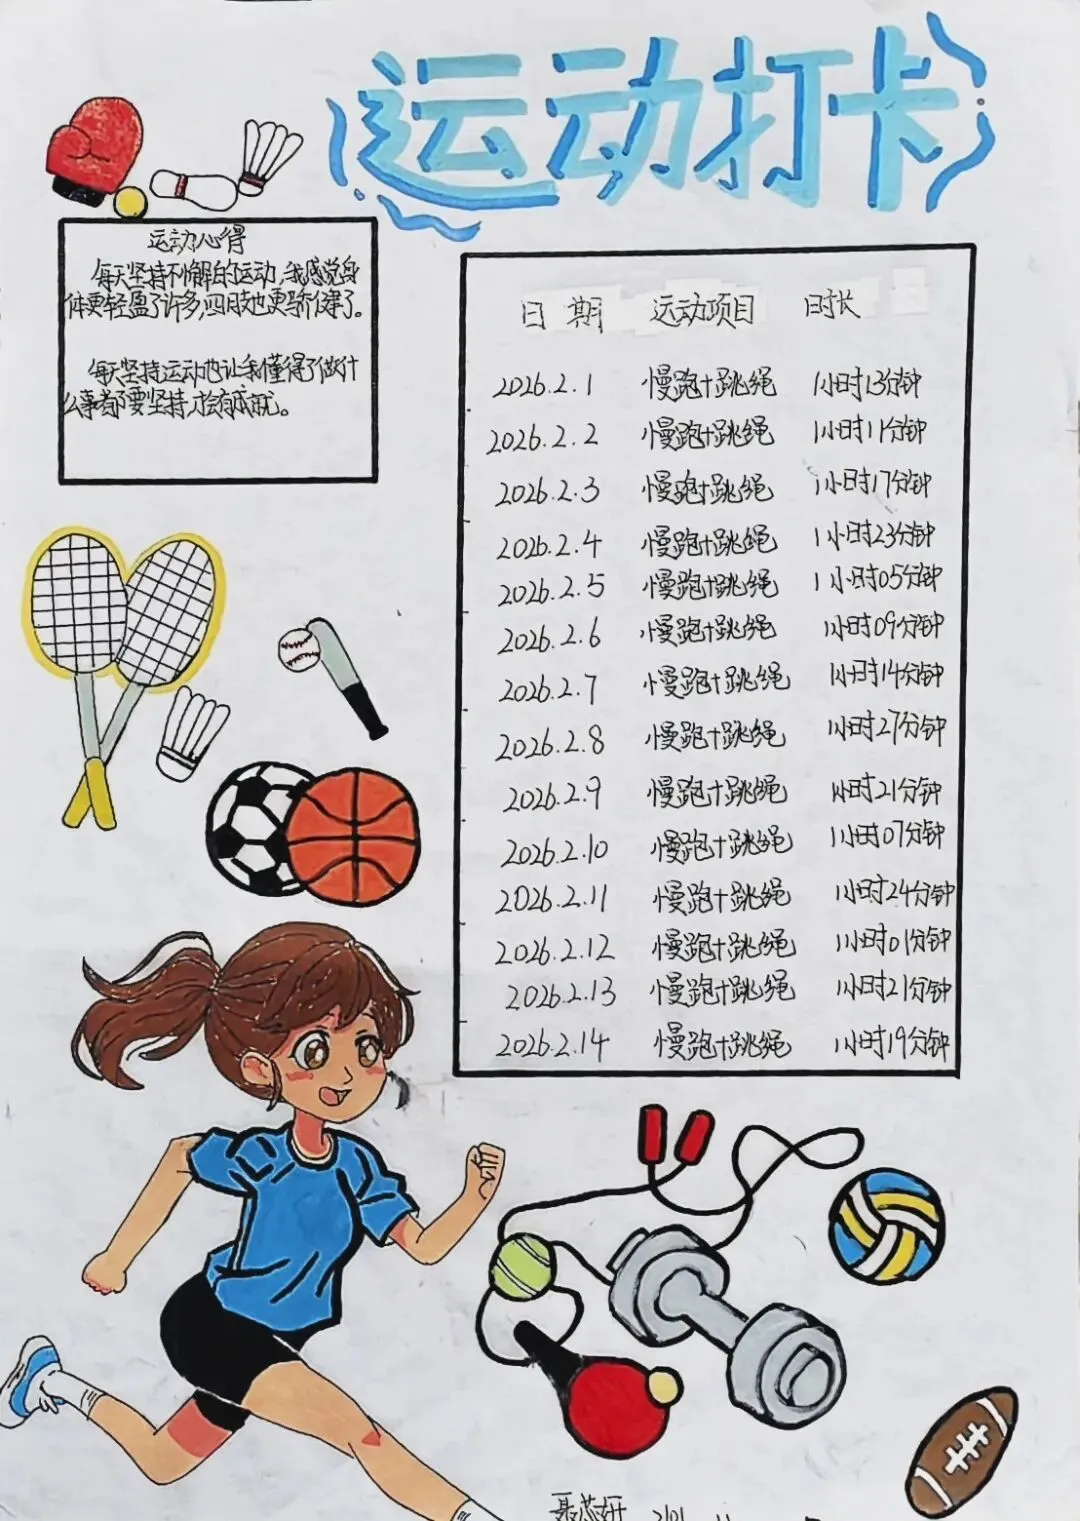 运动打卡
运动心得
每天坚持不懈的运动,我感觉身
体要轻盈了许多,四肢也更矫健了。
每天坚持运动也让我懂得了做什
么事都要坚持,才会有成就。
日 期 运动项目 时长
2026.2.1 慢跑+跳绳 1小时13分钟
2026.2.2 慢跑+跳绳 1小时11分钟
2026.2.3 慢跑+跳绳 1小时17分钟
2026.2.4 慢跑+跳绳 1小时23分钟
2026.2.5 慢跑+跳绳 1小时05分钟
2026.2.6 慢跑+跳绳 1小时09分钟
2026.2.7 慢跑+跳绳 1小时14分钟
2026.2.8 慢跑+跳绳 1小时27分钟
2026.2.9 慢跑+跳绳 1小时21分钟
2026.2.10 慢跑+跳绳 1小时07分钟
2026.2.11 慢跑+跳绳 1小时24分钟
2026.2.12 慢跑+跳绳 1小时01分钟
2026.2.13 慢跑+跳绳 1小时21分钟
2026.2.14 慢跑+跳绳 1小时19分钟
聂芯妍